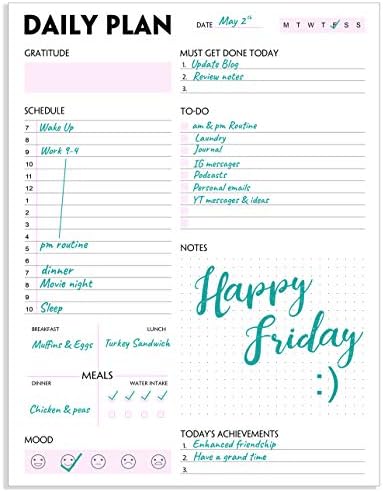 DAILY PLAN
DATE May 2th
M T W T F S S
GRATITUDE
MUST GET DONE TODAY
1. Update Blog
2. Review notes
3.
SCHEDULE
7 Wake Up
8
9 Work 9-4
10
11
12
1
2
3
4
5 pm routine
6
7 dinner
8 Movie night
9
10 Sleep
TO-DO
am & pm Routine
Laundry
Journal
IG messages
Podcasts
Personal emails
YT messages & ideas
NOTES
Happy
Friday
:)
BREAKFAST
Muffins & Eggs
LUNCH
Turkey Sandwich
MEALS
DINNER
Chicken & peas
WATER INTAKE
MOOD
TODAY'S ACHIEVEMENTS
1. Enhanced friendship
2. Have a grand time
3.